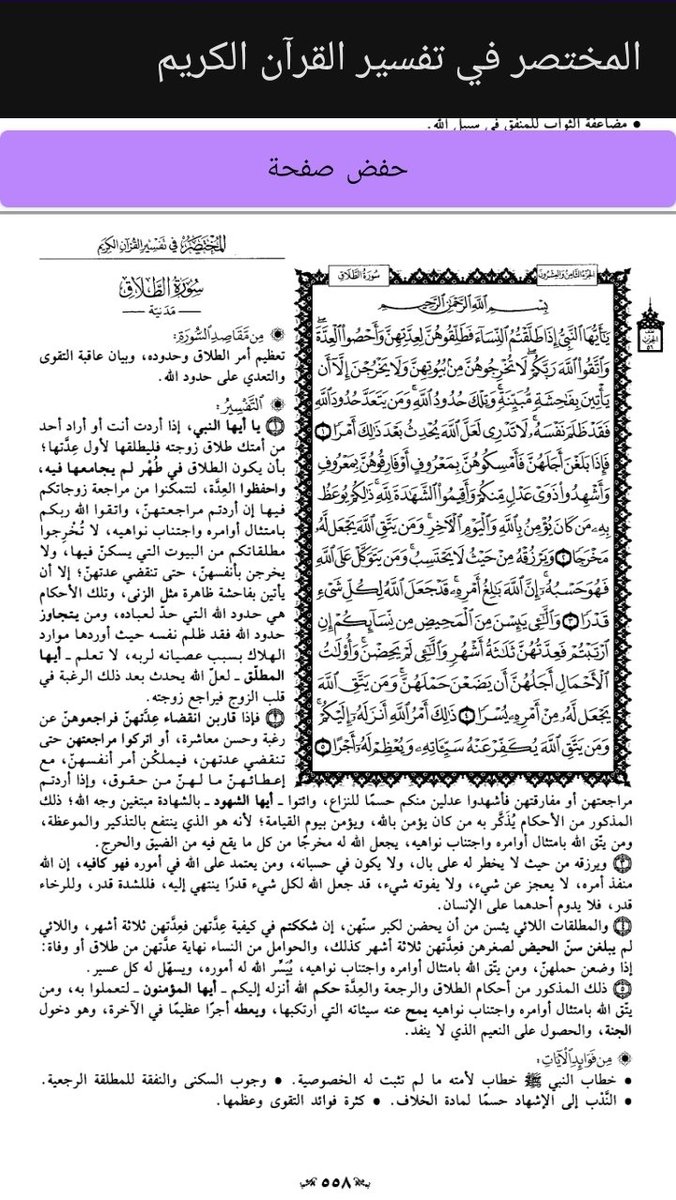 المختصر في تفسير القرآن الكريم
• مضاعفة الثواب للمنفق في سبيل الله.
حفض صفحة
المختصر في تفسير القرآن الكريم
سورة الطلاق
الجزء الثامن والعشرون
الحزب ٥٦
بِسْمِ اللَّهِ الرَّحْمَٰنِ الرَّحِيمِ
يَٰٓأَيُّهَا ٱلنَّبِيُّ إِذَا طَلَّقْتُمُ ٱلنِّسَآءَ فَطَلِّقُوهُنَّ لِعِدَّتِهِنَّ وَأَحْصُوا۟ ٱلْعِدَّةَ
وَٱتَّقُوا۟ ٱللَّهَ رَبَّكُمْ لَا تُخْرِجُوهُنَّ مِنۢ بُيُوتِهِنَّ وَلَا يَخْرُجْنَ إِلَّآ أَن
يَأْتِينَ بِفَٰحِشَةٍ مُّبَيِّنَةٍ وَتِلْكَ حُدُودُ ٱللَّهِ وَمَن يَتَعَدَّ حُدُودَ ٱللَّهِ
فَقَدْ ظَلَمَ نَفْسَهُۥ لَا تَدْرِى لَعَلَّ ٱللَّهَ يُحْدِثُ بَعْدَ ذَٰلِكَ أَمْرًا ١
فَإِذَا بَلَغْنَ أَجَلَهُنَّ فَأَمْسِكُوهُنَّ بِمَعْرُوفٍ أَوْ فَارِقُوهُنَّ بِمَعْرُوفٍ
وَأَشْهِدُوا۟ ذَوَىْ عَدْلٍ مِّنكُمْ وَأَقِيمُوا۟ ٱلشَّهَٰدَةَ لِلَّهِ ذَٰلِكُمْ يُوعَظُ
بِهِۦ مَن كَانَ يُؤْمِنُ بِٱللَّهِ وَٱلْيَوْمِ ٱلْءَاخِرِ وَمَن يَتَّقِ ٱللَّهَ يَجْعَل لَّهُۥ
مَخْرَجًا ٢ وَيَرْزُقْهُ مِنْ حَيْثُ لَا يَحْتَسِبُ وَمَن يَتَوَكَّلْ عَلَى ٱللَّهِ
فَهُوَ حَسْبُهُۥٓ إِنَّ ٱللَّهَ بَٰلِغُ أَمْرِهِۦ قَدْ جَعَلَ ٱللَّهُ لِكُلِّ شَىْءٍ
قَدْرًا ٣ وَٱلَّٰٓـِٔى يَئِسْنَ مِنَ ٱلْمَحِيضِ مِن نِّسَآئِكُمْ إِنِ
ٱرْتَبْتُمْ فَعِدَّتُهُنَّ ثَلَٰثَةُ أَشْهُرٍ وَٱلَّٰٓـِٔى لَمْ يَحِضْنَ وَأُو۟لَٰتُ
ٱلْأَحْمَالِ أَجَلُهُنَّ أَن يَضَعْنَ حَمْلَهُنَّ وَمَن يَتَّقِ ٱللَّهَ
يَجْعَل لَّهُۥ مِنْ أَمْرِهِۦ يُسْرًا ٤ ذَٰلِكَ أَمْرُ ٱللَّهِ أَنزَلَهُۥٓ إِلَيْكُمْ
وَمَن يَتَّقِ ٱللَّهَ يُكَفِّرْ عَنْهُ سَيِّـَٔاتِهِۦ وَيُعْظِمْ لَهُۥٓ أَجْرًا ٥
سورة الطلاق
– مدنية –
من مقاصد السورة:
تعظيم أمر الطلاق وحدوده، وبيان عاقبة التقوى
والتعدي على حدود الله.
التفسير:
١ يا أيها النبي، إذا أردت أنت أو أراد أحد
من أمتك طلاق زوجته فليطلقها لأول عِدَّتها؛
بأن يكون الطلاق في طُهْر لم يجامعها فيه،
واحفظوا العِدَّة، لتتمكنوا من مراجعة زوجاتكم
فيها إن أردتم مراجعتهنّ، واتقوا الله ربكم
بامتثال أوامره واجتناب نواهيه، لا تُخْرِجوا
مطلقاتكم من البيوت التي يسكنّ فيها، ولا
يخرجن بأنفسهنّ، حتى تنقضي عدتهنّ؛ إلا أن
يأتين بفاحشة ظاهرة مثل الزنى، وتلك الأحكام
هي حدود الله التي حدّ لعباده، ومن يتجاوز
حدود الله فقد ظلم نفسه حيث أوردها موارد
الهلاك بسبب عصيانه لربه، لا تعلم ـ أيها
المطلّق ـ لعلّ الله يحدث بعد ذلك الرغبة في
قلب الزوج فيراجع زوجته.
٢ فإذا قاربن انقضاء عِدَّتهنّ فراجعوهنّ عن
رغبة وحسن معاشرة، أو اتركوا مراجعتهن حتى
تنقضي عدتهن، فيملكن أمر أنفسهنّ، مع
إعطائهنّ ما لهنّ من حقوق، وإذا أردتم
مراجعتهن أو مفارقتهن فأشهدوا عدلين منكم حسمًا للنزاع، وائتوا ـ أيها الشهود ـ بالشهادة مبتغين وجه الله؛ ذلك
المذكور من الأحكام يُذَكَّر به من كان يؤمن بالله، ويؤمن بيوم القيامة؛ لأنه هو الذي ينتفع بالتذكير والموعظة،
ومن يتّق الله بامتثال أوامره واجتناب نواهيه، يجعل الله له مخرجًا من كل ما يقع فيه من الضيق والحرج.
٣ ويرزقه من حيث لا يخطر له على بال، ولا يكون في حسبانه، ومن يعتمد على الله في أموره فهو كافيه، إن الله
منفذ أمره، لا يعجز عن شيء، ولا يفوته شيء، قد جعل الله لكل شيء قدرًا ينتهي إليه، فللشدة قدر، وللرخاء
قدر، فلا يدوم أحدهما على الإنسان.
٤ والمطلقات اللائي يئسن من أن يحضن لكبر سنّهن، إن شككتم في كيفية عِدَّتهن فعِدَّتهن ثلاثة أشهر، واللائي
لم يبلغن سنّ الحيض لصغرهن فعِدَّتهن ثلاثة أشهر كذلك، والحوامل من النساء نهاية عدَّتهن من طلاق أو وفاة:
إذا وضعن حملهنّ، ومن يتّق الله بامتثال أوامره واجتناب نواهيه، يُيَسِّر الله له أموره، ويسهّل له كل عسير.
٥ ذلك المذكور من أحكام الطلاق والرجعة والعِدَّة حكم الله أنزله إليكم ـ أيها المؤمنون ـ لتعملوا به، ومن
يتّق الله بامتثال أوامره واجتناب نواهيه يمح عنه سيئاته التي ارتكبها، ويعطه أجرًا عظيمًا في الآخرة، وهو دخول
الجنة، والحصول على النعيم الذي لا ينفد.
من فوائد الآيات:
• خطاب النبي ﷺ خطاب لأمته ما لم تثبت له الخصوصية. • وجوب السكنى والنفقة للمطلقة الرجعية.
• النَّدْب إلى الإشهاد حسمًا لمادة الخلاف. • كثرة فوائد التقوى وعظمها.
٥٥٨